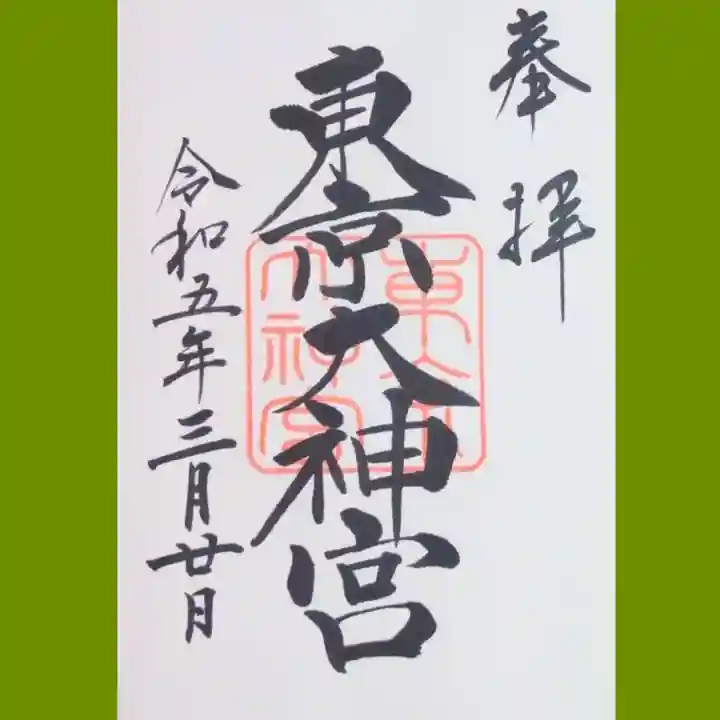 奉拝
東京大神宮
令和五年三月廿日
東京
大神宮